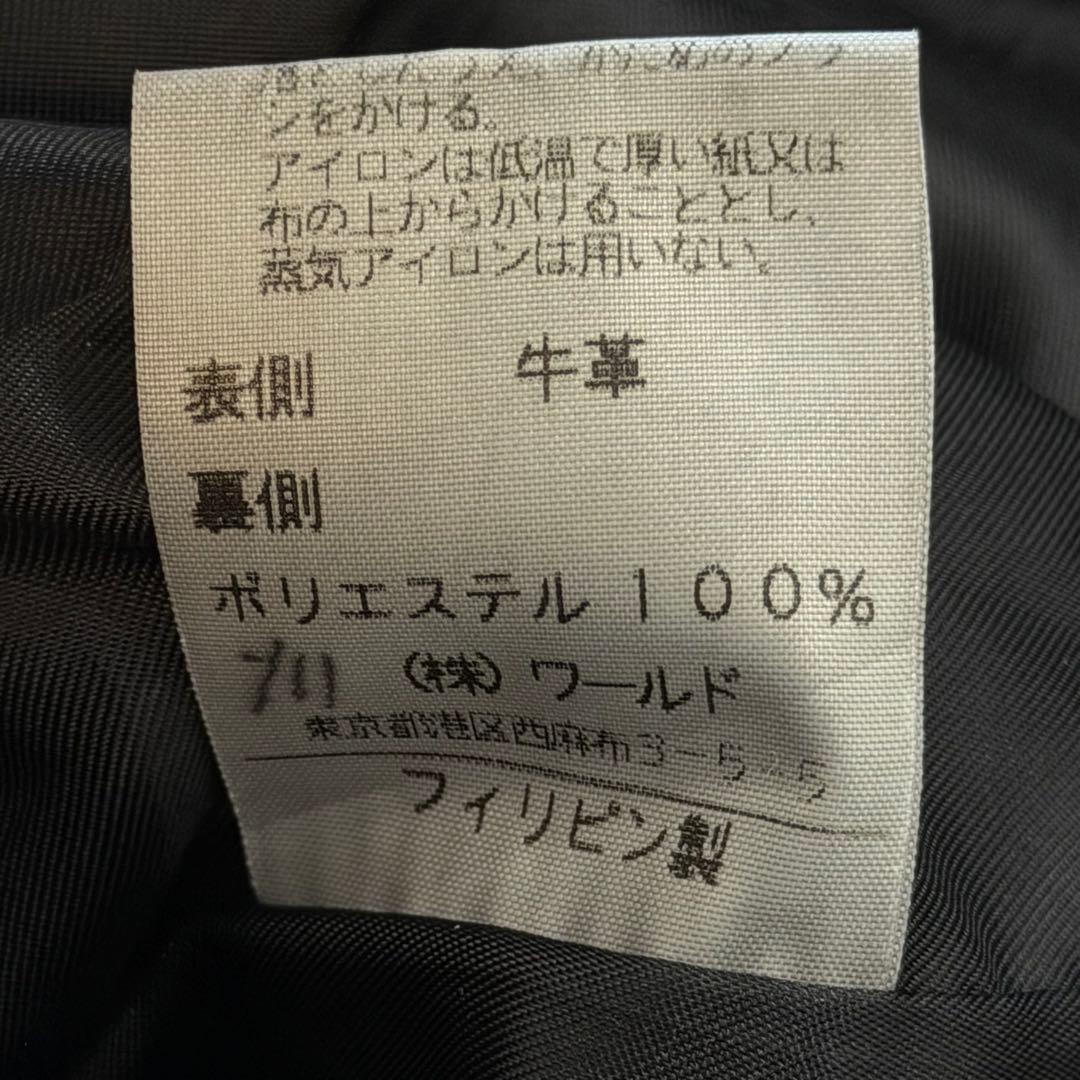 ンをかける。
アイロンは低温で厚い紙又は
布の上からかけることとし、
蒸気アイロンは用いない。
表側 牛革
裏側
ポリエステル100%
(株)ワールド
東京都港区西麻布3-5-5
フィリピン製